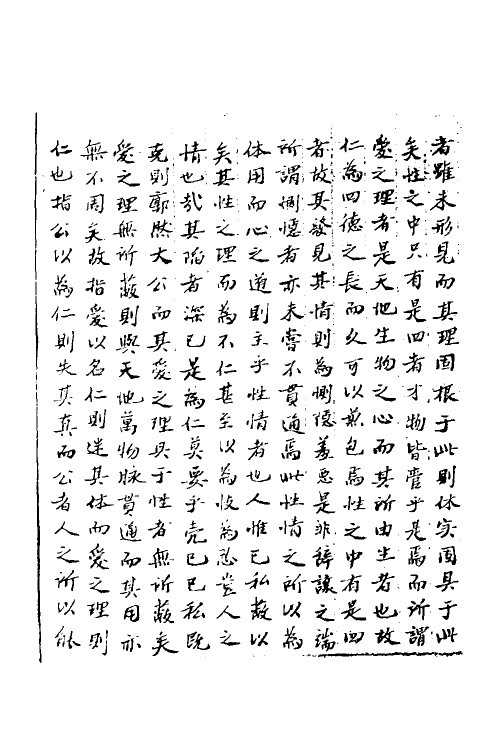 者雖未形見而其理固根于此則体实固具于此
矣性之中只有是四者才物皆管乎是焉而所謂
愛之理者是天地生物之心而其所由生者也故
仁為四德之長而又可以兼包焉性之中有是四
者故其發見其情則為惻隱羞惡是非辭讓之端
所謂惻隱者亦未嘗不貫通焉此性情之所以為
体用而心之道則主乎性情者也人惟己私蔽以
矣其性之理而為不仁甚至以為忮為忍豈人之
情也哉其陷者深已是為仁莫要乎克已已私既
克則廓然大公而其愛之理具于性者無所蔽矣
愛之理無所蔽則與天地萬物脉貫通而其用亦
無不周矣故指愛以名仁則迷其体而愛之理則
仁也指公以為仁則失其真而公者人之所以能